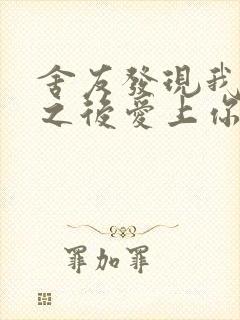 舍友發現我
之後愛上你
罪加罪